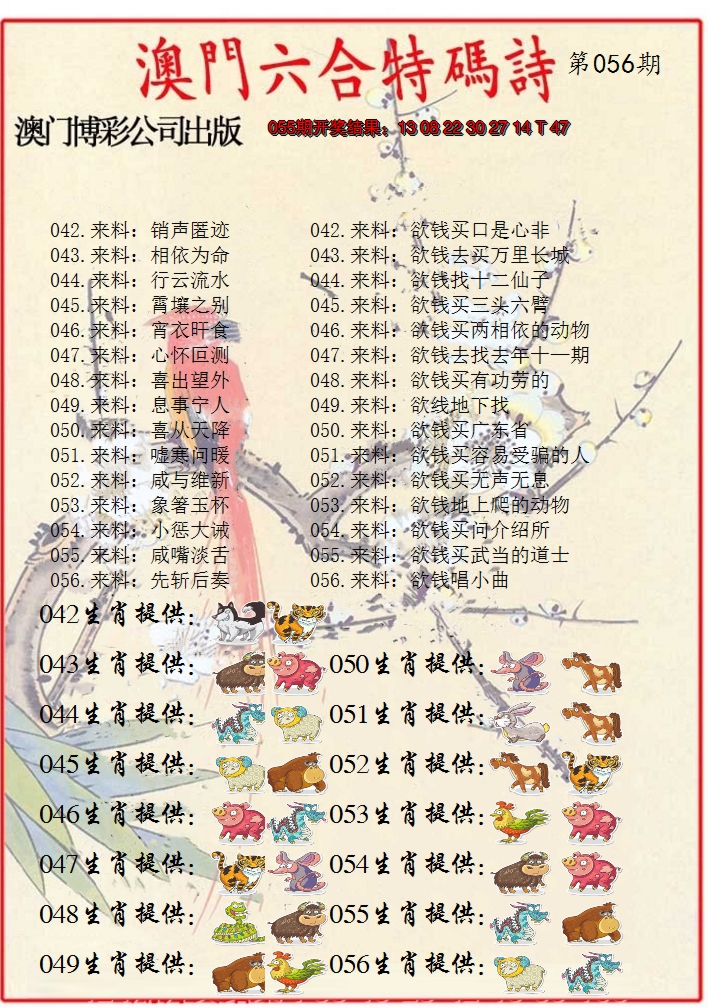 澳門六合特碼詩 第056期
澳门博彩公司出版 055期开奖结果：13 08 22 30 27 14 T 47
042.来料：销声匿迹 042.来料：欲钱买口是心非
043.来料：相依为命 043.来料：欲钱去买万里长城
044.来料：行云流水 044.来料：欲钱找十二仙子
045.来料：霄壤之别 045.来料：欲钱买三头六臂
046.来料：宵衣旰食 046.来料：欲钱买两相依的动物
047.来料：心怀叵测 047.来料：欲钱去找去年十一期
048.来料：喜出望外 048.来料：欲钱买有功劳的
049.来料：息事宁人 049.来料：欲线地下找
050.来料：喜从天降 050.来料：欲钱买广东省
051.来料：嘘寒问暖 051.来料：欲钱买容易受骗的人
052.来料：咸与维新 052.来料：欲钱买无声无息
053.来料：象箸玉杯 053.来料：欲钱地上爬的动物
054.来料：小惩大诫 054.来料：欲钱买问介绍所
055.来料：咸嘴淡舌 055.来料：欲钱买武当的道士
056.来料：先斩后奏 056.来料：欲钱唱小曲
042生肖提供：
043生肖提供： 050生肖提供：
044生肖提供： 051生肖提供：
045生肖提供： 052生肖提供：
046生肖提供： 053生肖提供：
047生肖提供： 054生肖提供：
048生肖提供： 055生肖提供：
049生肖提供： 056生肖提供：